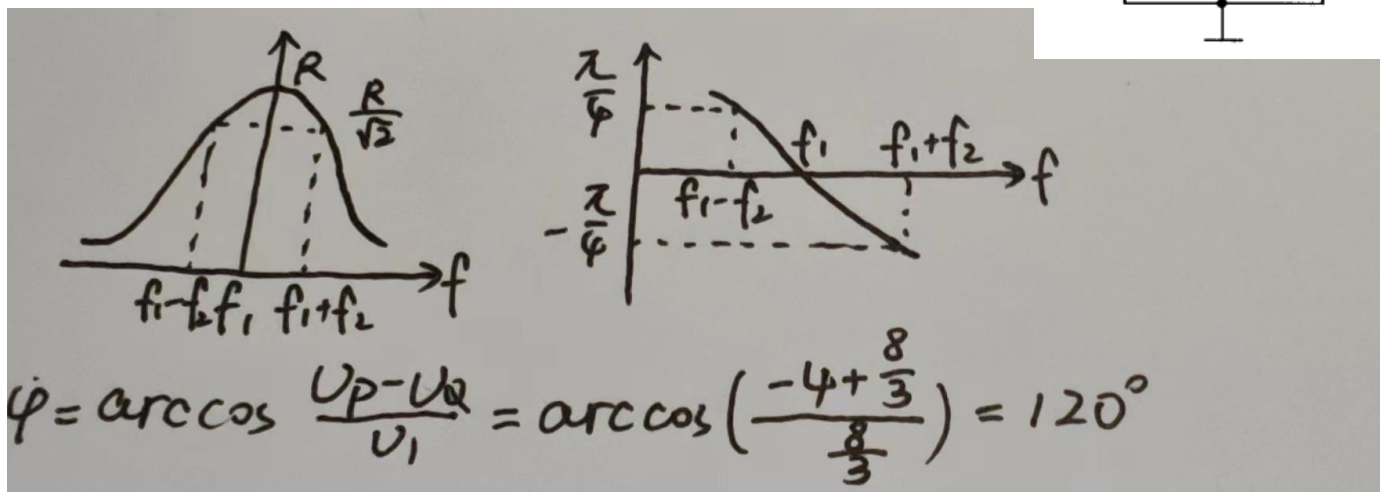 R
R/√2
f
f₁-f₂ f₁ f₁+f₂
π/4
f₁
f₁+f₂
f
f₁-f₂
-π/4
φ̇ = arccos (U_P-U_Q)/U₁ = arccos((-4+8/3)/(8/3)) = 120°